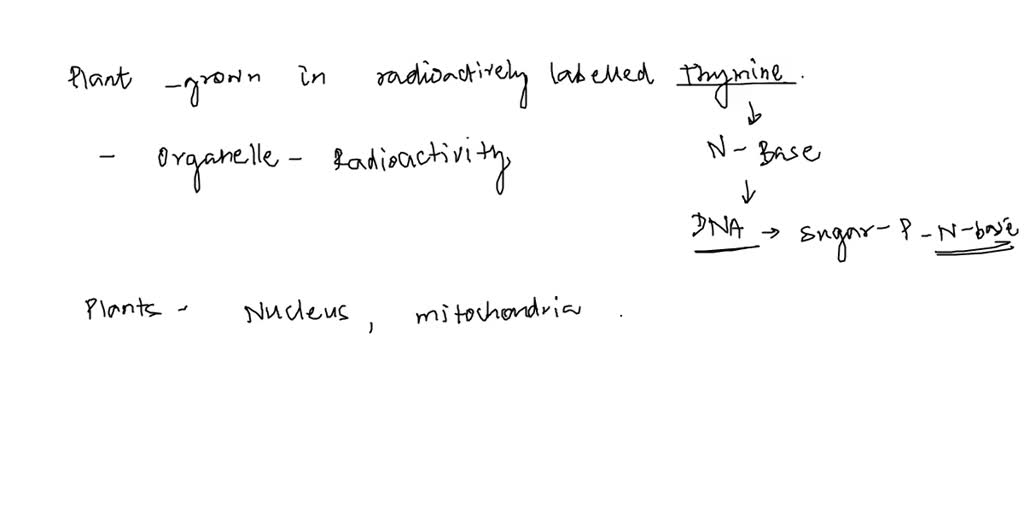 Plant - grown in radioactively labelled thymine.
↓
- Organelle - Radioactivity
N - Base
↓
DNA → sugar - P - N-base
Plants - Nucleus, mitochondria.